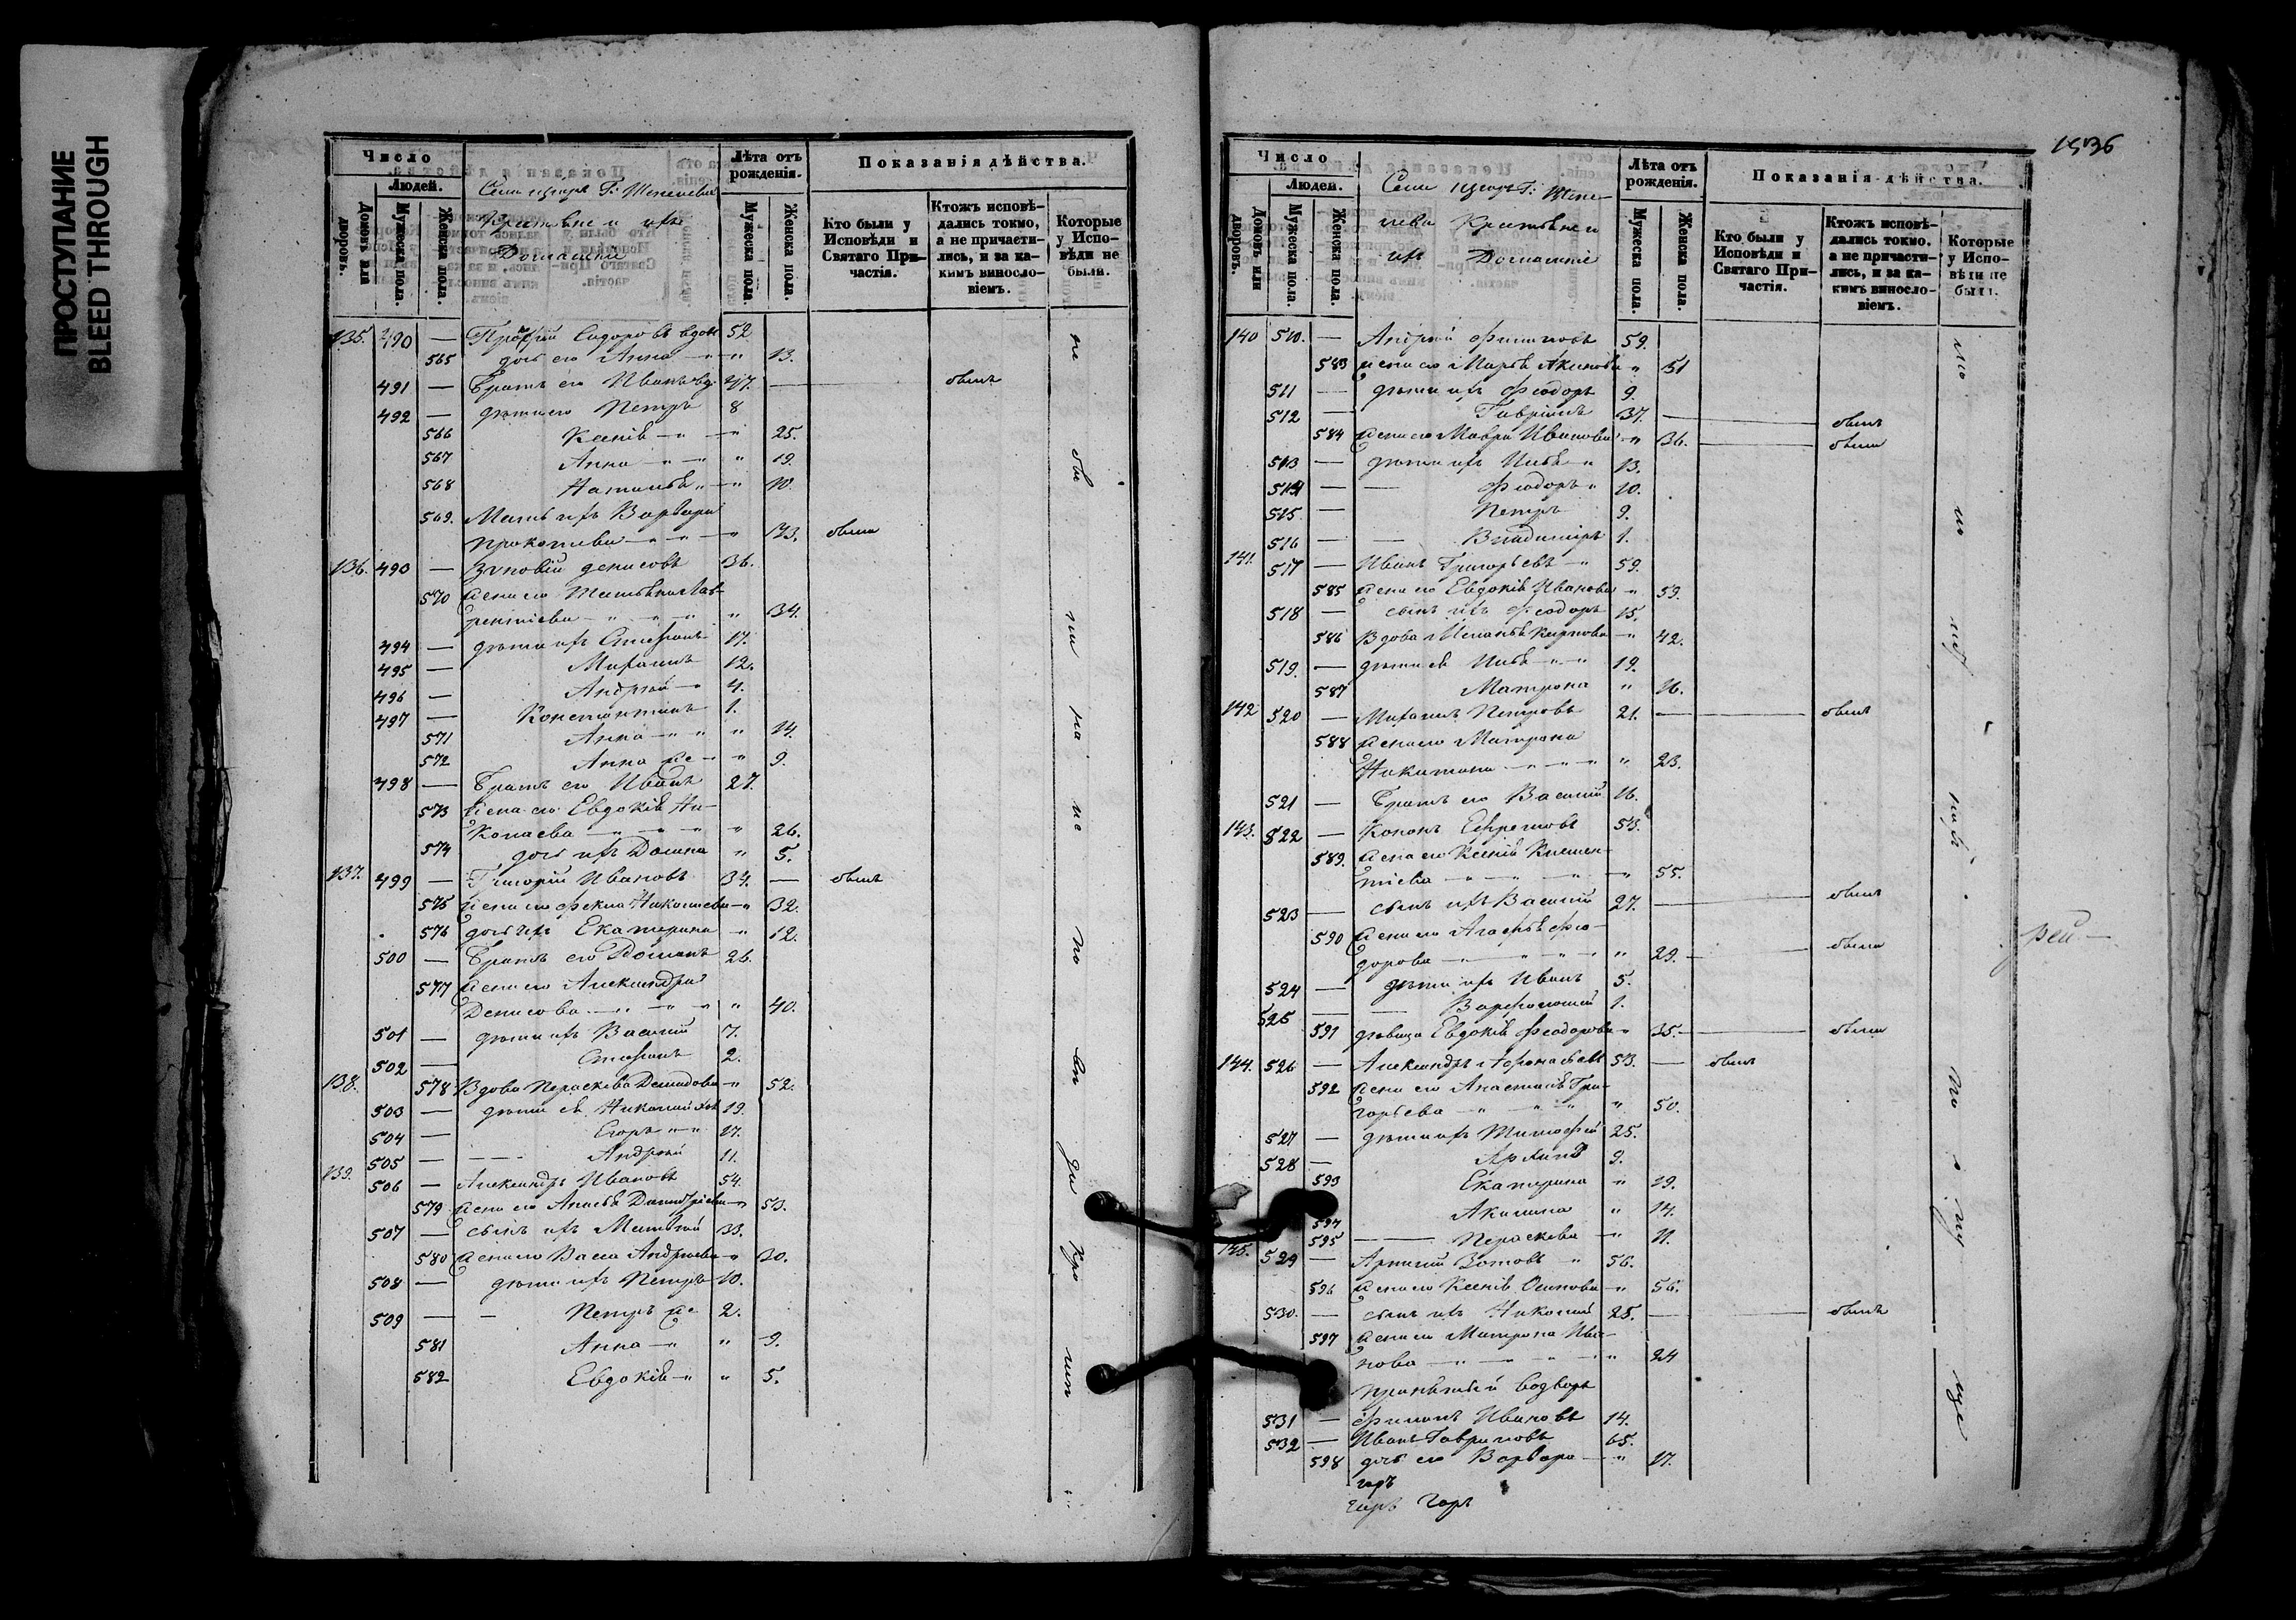 ПРОСТУПАНИЕ
BLEED THROUGH
Число
Людей.
Домовъ или дворовъ.
Мужеска пола.
Женска пола.
Крестьяне и ихъ
Домашніе
Лѣта отъ рожденія.
Мужеска пола.
Женска пола.
Показанія дѣйства.
Кто были у Исповѣди и Святаго Причастія.
Ктожъ исповѣдались токмо, а не причастились, и за какимъ винословіемъ.
Которые у Исповѣди не были.
135. 490 — Сидоровъ вдов 52
565 дочь его Анна — " 13.
491 — Братъ его Иванъ вд. 47. — былъ
492 — дѣти его Петръ 8
566 Ксенія — " 25.
567 Анна — " 19.
568 Наталья — " 10.
569. Мать ихъ Варвара
Прокопиева — " 73. была
136. 493 — Зиновій Денисовъ 36.
570 жена его Татьяна Лав-
рентіева — " 34.
494 — дѣти ихъ Стефанъ 17.
495 — Михаилъ 12.
496 — Андрей 4.
497 — Константинъ 1.
571 Анна — " 14.
572 Анна же — " 9.
498 — Братъ его Иванъ 27.
573 жена его Евдокія Ни-
колаева — " 26.
574 дочь ихъ Домна " 5.
137. 499 — Григорій Ивановъ 34. — былъ
575 жена его Фекла Николаева " 32.
576 дочь ихъ Екатерина " 12.
500 — Братъ его 26.
577 жена его Александра
Денисова — " 40.
501 — дѣти ихъ Василій 7.
502 — Стефанъ 2.
138. 578 Вдова Параскева Демидова — " 52.
503 — дѣти ея Николай 19.
504 — Егоръ " 17.
505 — Андрей 11.
139. 506 — Александръ Ивановъ 54.
579 жена его Димитріева — " 53.
507 — сынъ ихъ Матвей 33.
580 жена его Васса Андреева — " 30.
508 — дѣти ихъ Петръ 10.
509 — Петръ же 2.
581 Анна — " 9.
582 Евдокія — " 5.
1536
Число
Людей.
Домовъ или дворовъ.
Мужеска пола.
Женска пола.
Крестьяне и
ихъ Домашніе
Лѣта отъ рожденія.
Мужеска пола.
Женска пола.
Показанія дѣйства.
Кто были у Исповѣди и Святаго Причастія.
Ктожъ исповѣдались токмо, а не причастились, и за какимъ винословіемъ.
Которые у Исповѣди не были.
140 510. — Андрей Филиповъ 59.
583 жена его Марья Акимова " 51
511 — дѣти ихъ Феодоръ 9.
512 — Гавріилъ 37. — былъ
584 жена его Мавра Иванова " 36. — была
513 — дѣти ихъ Илья " 13.
514 — Феодоръ " 10.
515 — Петръ 9.
516 — Владиміръ 1.
141. 517 — Иванъ Григорьевъ " 59.
585 жена его Евдокія Иванова " 59.
518 — сынъ ихъ Феодоръ 15.
586 Вдова Меланья Карпова " 42.
519. — дѣти ея Илья 19.
587 Матрона " 16.
142 520 — Михаилъ Петровъ 21. — былъ
588 жена его Матрона
Никитина — " 23.
521 — Братъ его Василій 16.
143. 522 — Кононъ Ефремовъ 53.
589. жена его Ксенія Климен-
тіева — " 55.
523 — сынъ ихъ Василій 27. — былъ
590 жена его Агафья Фео-
дорова — " 29. — была
524 — дѣти ихъ Иванъ 5.
525 — Варфоломей 1.
591 дѣвица Евдокія Феодорова " 35. — была
144. 526 — Александръ Афонасьевъ 53. — былъ
592 жена его Анастасія Гри-
горьева — " 50.
527 — дѣти ихъ Тимофей 25.
528 — 9.
593 Екатерина " 19.
594 Акилина " 14.
595 Параскева " 11.
145. 529 — Зотовъ " 56.
596 жена его Ксенія Осипова " 56.
530. — сынъ ихъ Николай 25. — былъ
597 жена его Матрона Ива-
нова — " 24
531 — Филипъ Ивановъ 14.
532 — Иванъ Гавриловъ 65.
598 дочь его Варвара — " 17.